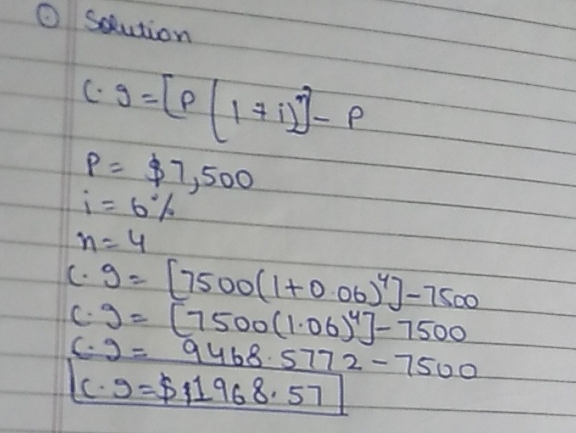 ① Solution
C.I = [P(1+i)ⁿ] - P
P = $7,500
i = 6%
n = 4
C.I = [7500(1+0.06)⁴] - 7500
C.I = [7500(1.06)⁴] - 7500
C.I = 9468.5772 - 7500
C.I = $1968.57